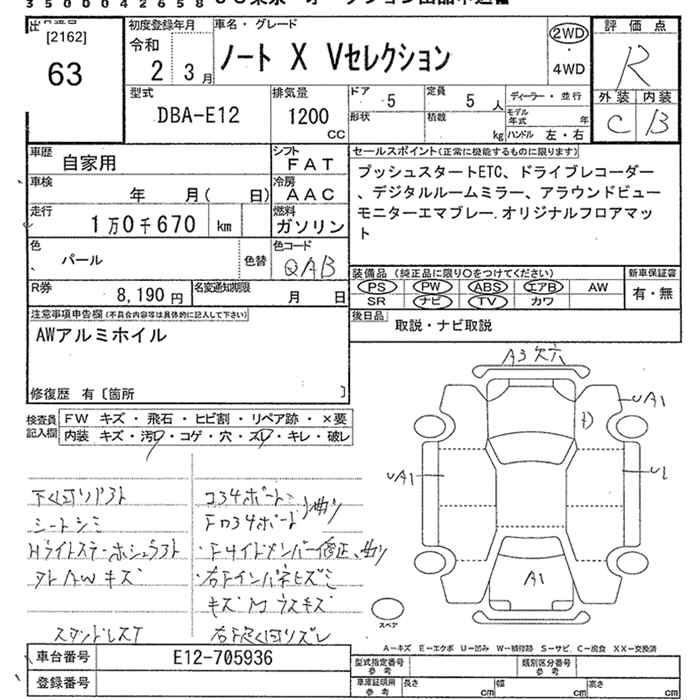 3500042658
[2162]
63
初度登録年月
令和
2 3月
車名・グレード
ノート X Vセレクション
2WD
4WD
評価点
R
外装 内装
C B
型式
DBA-E12
排気量
1200
CC
ドア 5
形状
定員 5 人
積載 kg
ディーラー・並行
モデル年式 年
ハンドル 左・右
車歴 自家用
シフト FAT
車検 年 月( 日)
冷房 AAC
走行 1万0千670 km
燃料 ガソリン
色 パール 色替
色コード QAB
R券 8,190円
名変通知期限 月 日
セールスポイント(正常に機能するものに限ります)
プッシュスタートETC、ドライブレコーダー
、デジタルルームミラー、アラウンドビュー
モニターエマブレー.オリジナルフロアマッ
ト
装備品(純正品に限り〇をつけてください)
新車保証書
PS PW ABS エアB AW
有・無
SR ナビ TV カワ
後日品 取説・ナビ取説
注意事項申告欄(不具合内容等は具体的に記入して下さい)
AWアルミホイル
修復歴 有〔箇所 〕
検査員記入欄
FW キズ・飛石・ヒビ割・リペア跡・×要
内装 キズ・汚・コゲ・穴・スレ・キレ・破レ
A3 欠穴
UA1
UA1
U1
A1
シートシミ
コ34ボード
Fロ34ボード
小曲り
AWキズ
スペア
A-キズ E-エクボ U-凹み W-補修跡 S-サビ C-腐食 XX-交換済
車台番号 E12-705936
登録番号
型式指定番号 参考
類別区分番号 参考
車庫証明用 参考
長さ cm 幅 cm 高さ cm